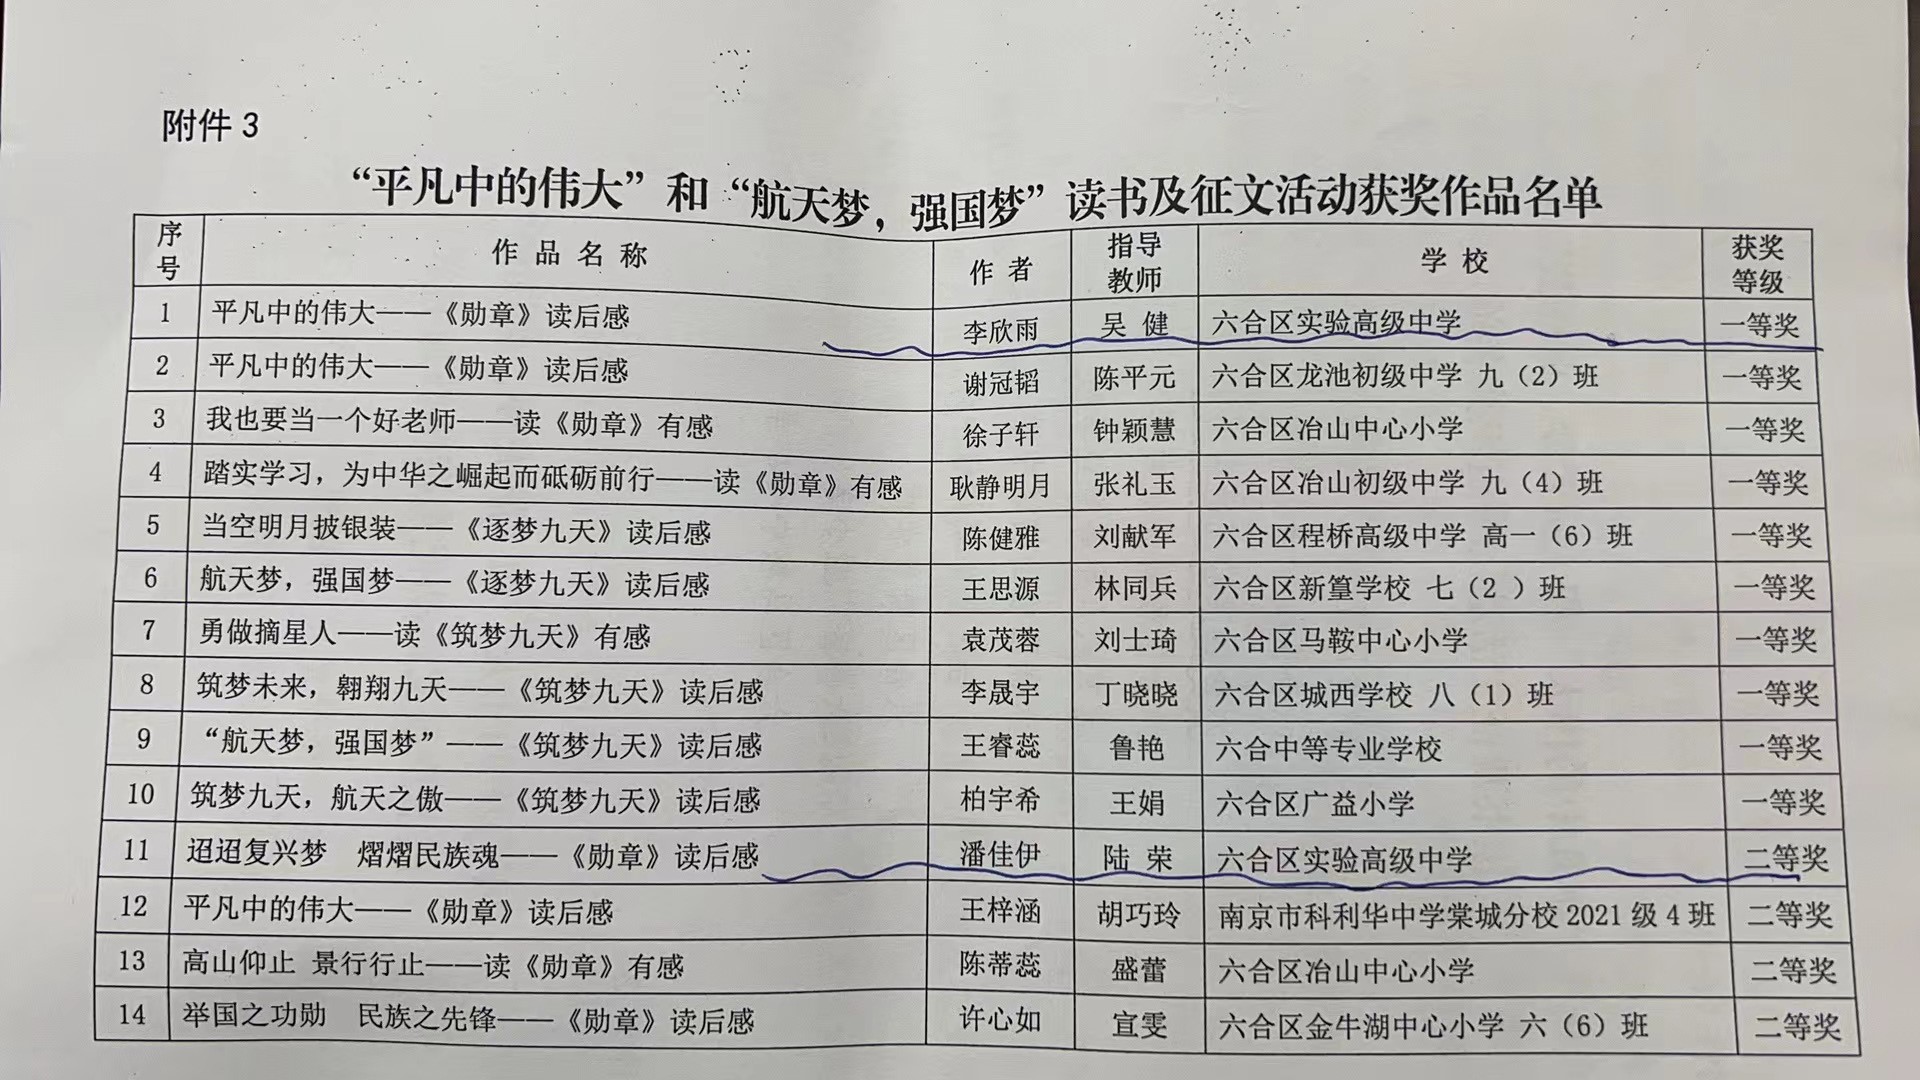 附件3
“平凡中的伟大”和“航天梦，强国梦”读书及征文活动获奖作品名单
序号 作品名称 作者 指导教师 学校 获奖等级
1 平凡中的伟大——《勋章》读后感 李欣雨 吴健 六合区实验高级中学 一等奖
2 平凡中的伟大——《勋章》读后感 谢冠韬 陈平元 六合区龙池初级中学 九（2）班 一等奖
3 我也要当一个好老师——读《勋章》有感 徐子轩 钟颖慧 六合区冶山中心小学 一等奖
4 踏实学习，为中华之崛起而砥砺前行——读《勋章》有感 耿静明月 张礼玉 六合区冶山初级中学 九（4）班 一等奖
5 当空明月披银装——《逐梦九天》读后感 陈健雅 刘献军 六合区程桥高级中学 高一（6）班 一等奖
6 航天梦，强国梦——《逐梦九天》读后感 王思源 林同兵 六合区新篁学校 七（2 ）班 一等奖
7 勇做摘星人——读《筑梦九天》有感 袁茂蓉 刘士琦 六合区马鞍中心小学 一等奖
8 筑梦未来，翱翔九天——《筑梦九天》读后感 李晟宇 丁晓晓 六合区城西学校 八（1）班 一等奖
9 “航天梦，强国梦”——《筑梦九天》读后感 王睿蕊 鲁艳 六合中等专业学校 一等奖
10 筑梦九天，航天之傲——《筑梦九天》读后感 柏宇希 王娟 六合区广益小学 一等奖
11 迢迢复兴梦 熠熠民族魂——《勋章》读后感 潘佳伊 陆荣 六合区实验高级中学 二等奖
12 平凡中的伟大——《勋章》读后感 王梓涵 胡巧玲 南京市科利华中学棠城分校2021级4班 二等奖
13 高山仰止 景行行止——读《勋章》有感 陈蒂蕊 盛蕾 六合区冶山中心小学 二等奖
14 举国之功勋 民族之先锋——《勋章》读后感 许心如 宣雯 六合区金牛湖中心小学 六（6）班 二等奖